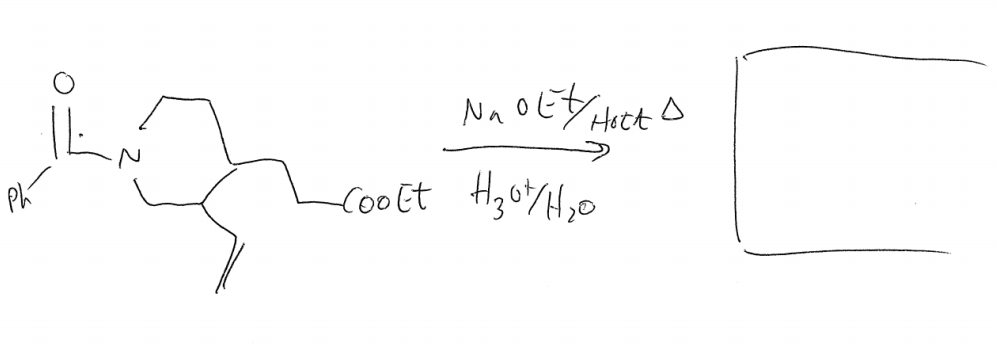 O
N
Ph
COOEt
NaOEt/HOEt Δ
H3O+/H2O